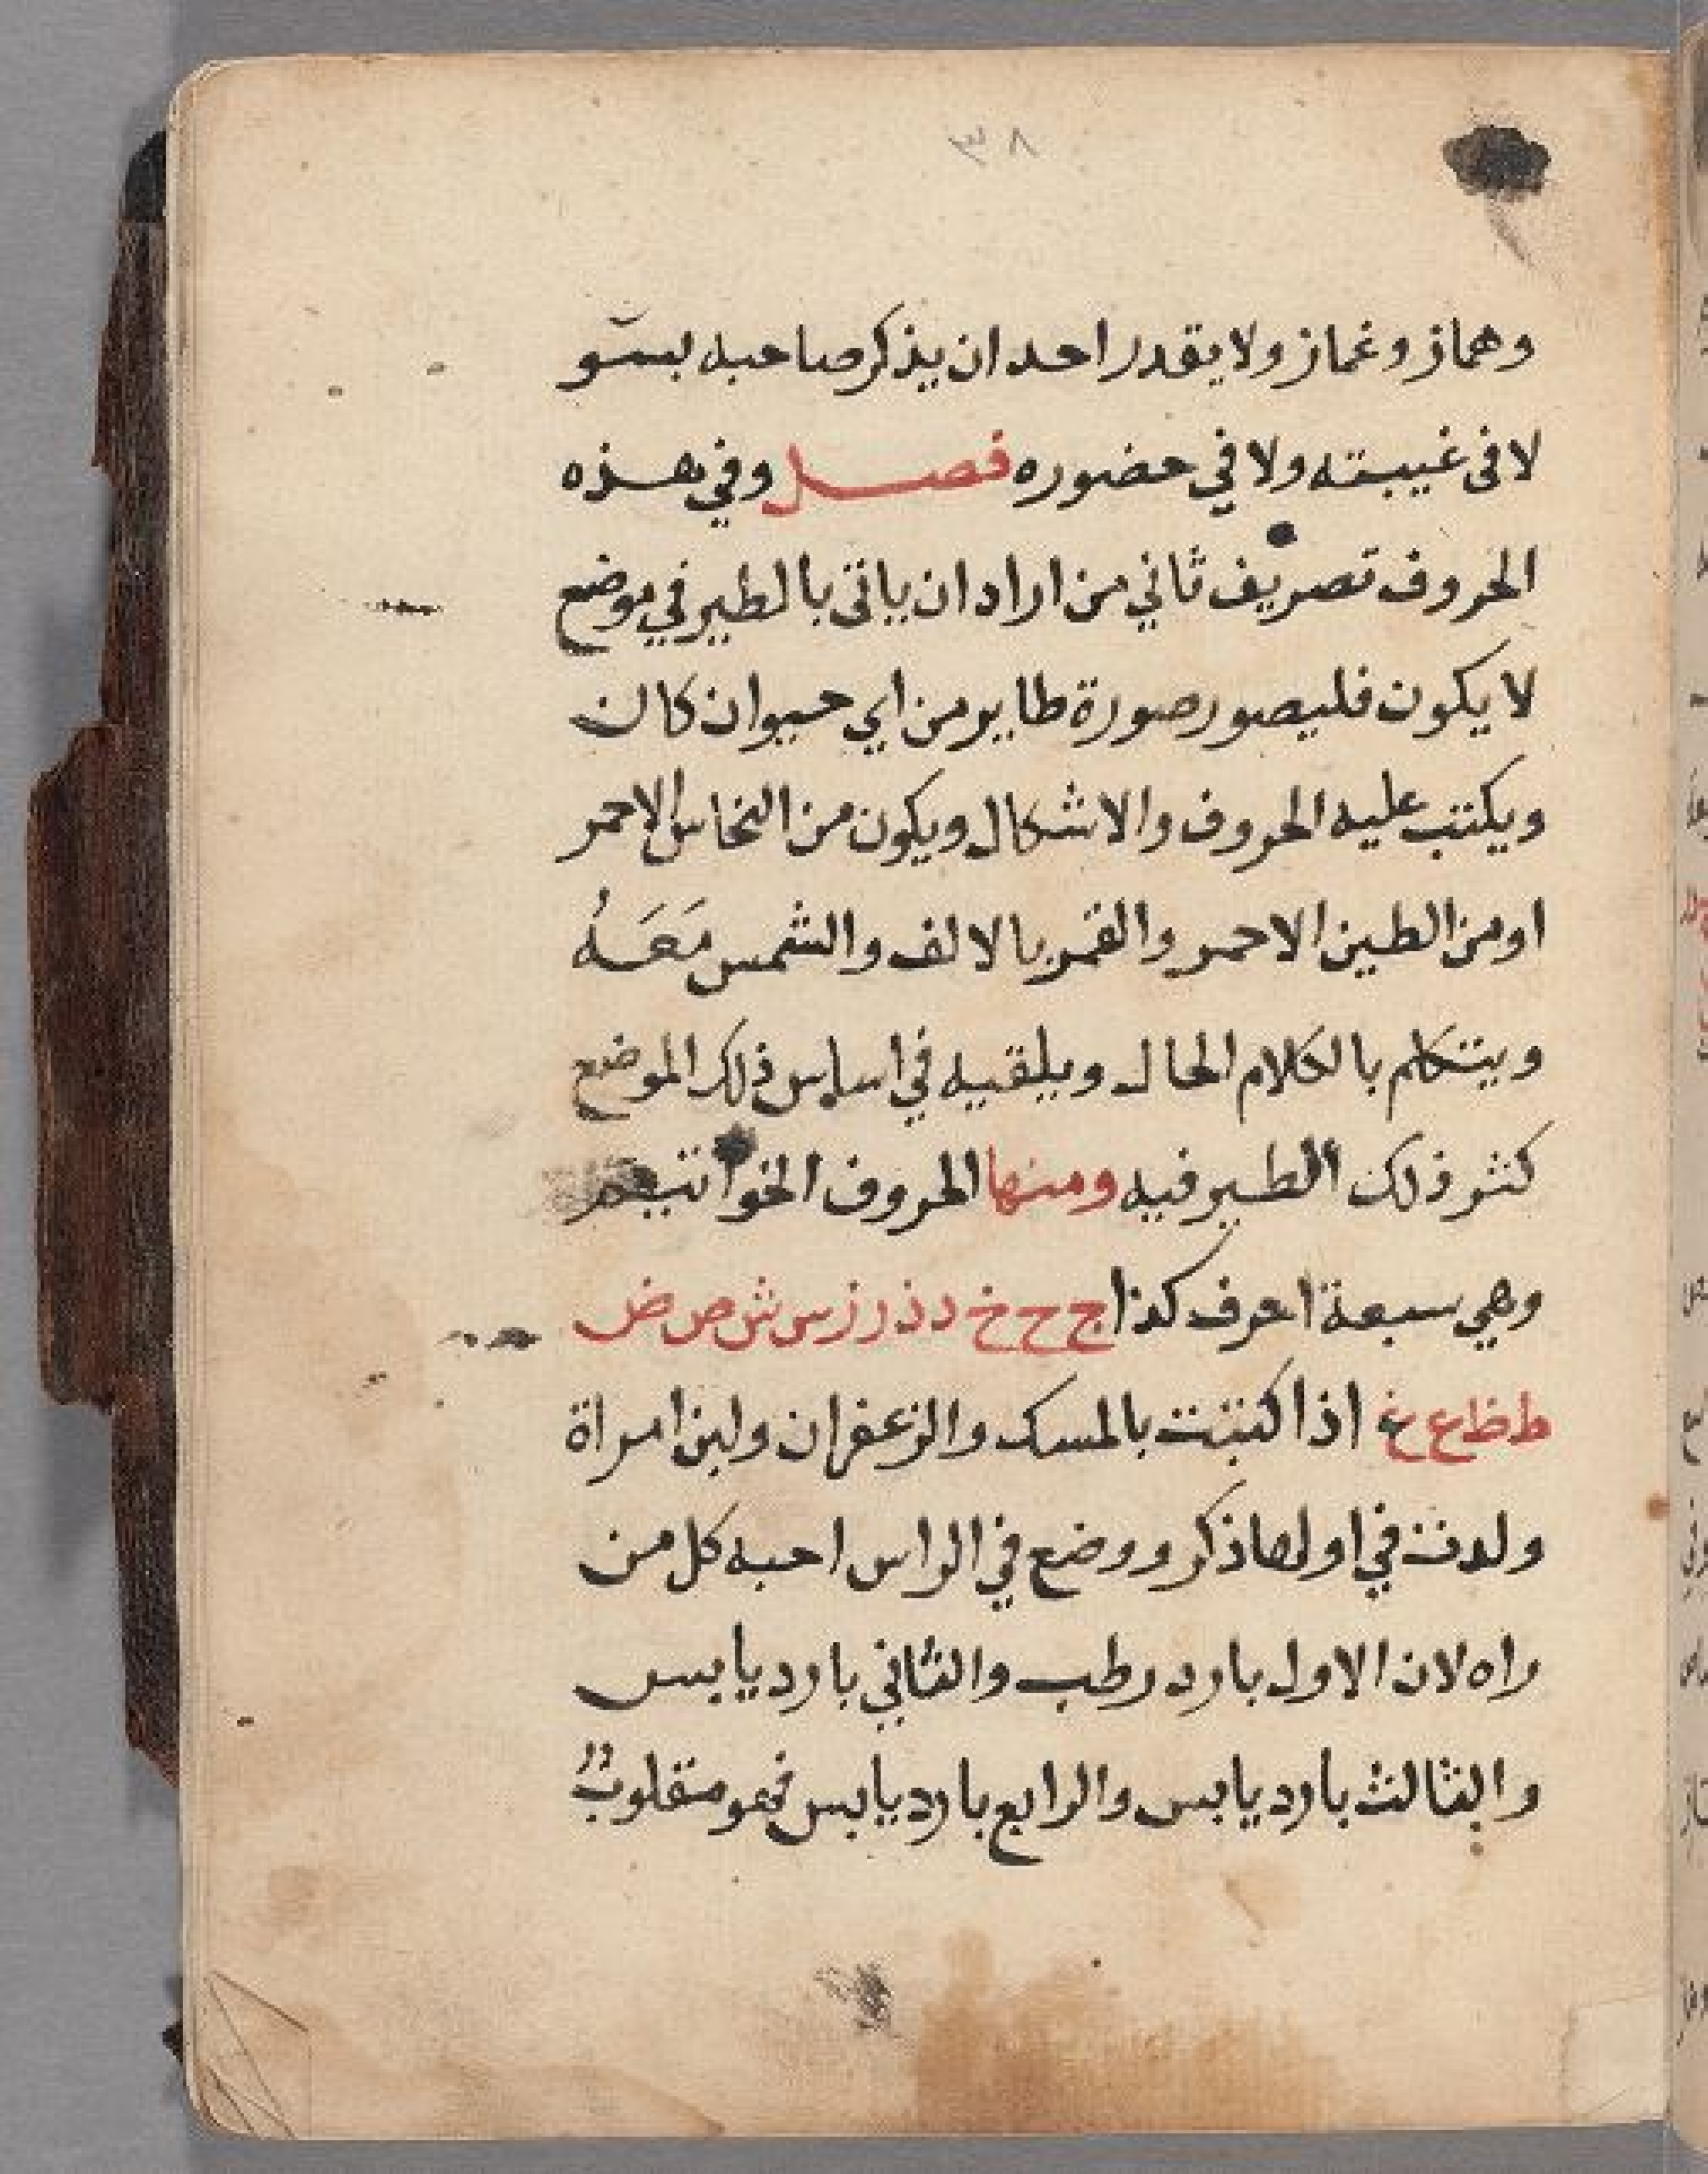 ٣٨
وهماز وغماز ولا يقدر احد ان يذكر صاحبه بسو
لا فى غيبته ولا في حضوره فصل وفي هذه
الحروف تصريف ثاني من اراد ان ياتى بالطير في موضع
لا يكون فليصور صورة طاير من اي حيوان كان
ويكتب عليه الحروف والاشكال ويكون من النحاس الاحمر
او من الطين الاحمر والقمر بالالف والشمس مَعَهُ
ويتكلم بالكلام الحال ويلقيه في اساس ذلك الموضع
كثر ذلك الطير فيه ومنها الحروف الخواتيم
وهي سبعة احرف كذا ج ح خ د ذ ر ز س ش ص ض
ط ظ ع غ اذا كتبت بالمسك والزعفران ولبن امراة
ولدت في اولها ذكر ووضع في الراس احبه كل من
راه لان الاول بارد رطب والثاني بارد يابس
والثالث بارد يابس والرابع بارد يابس فهو متقلوبٌ